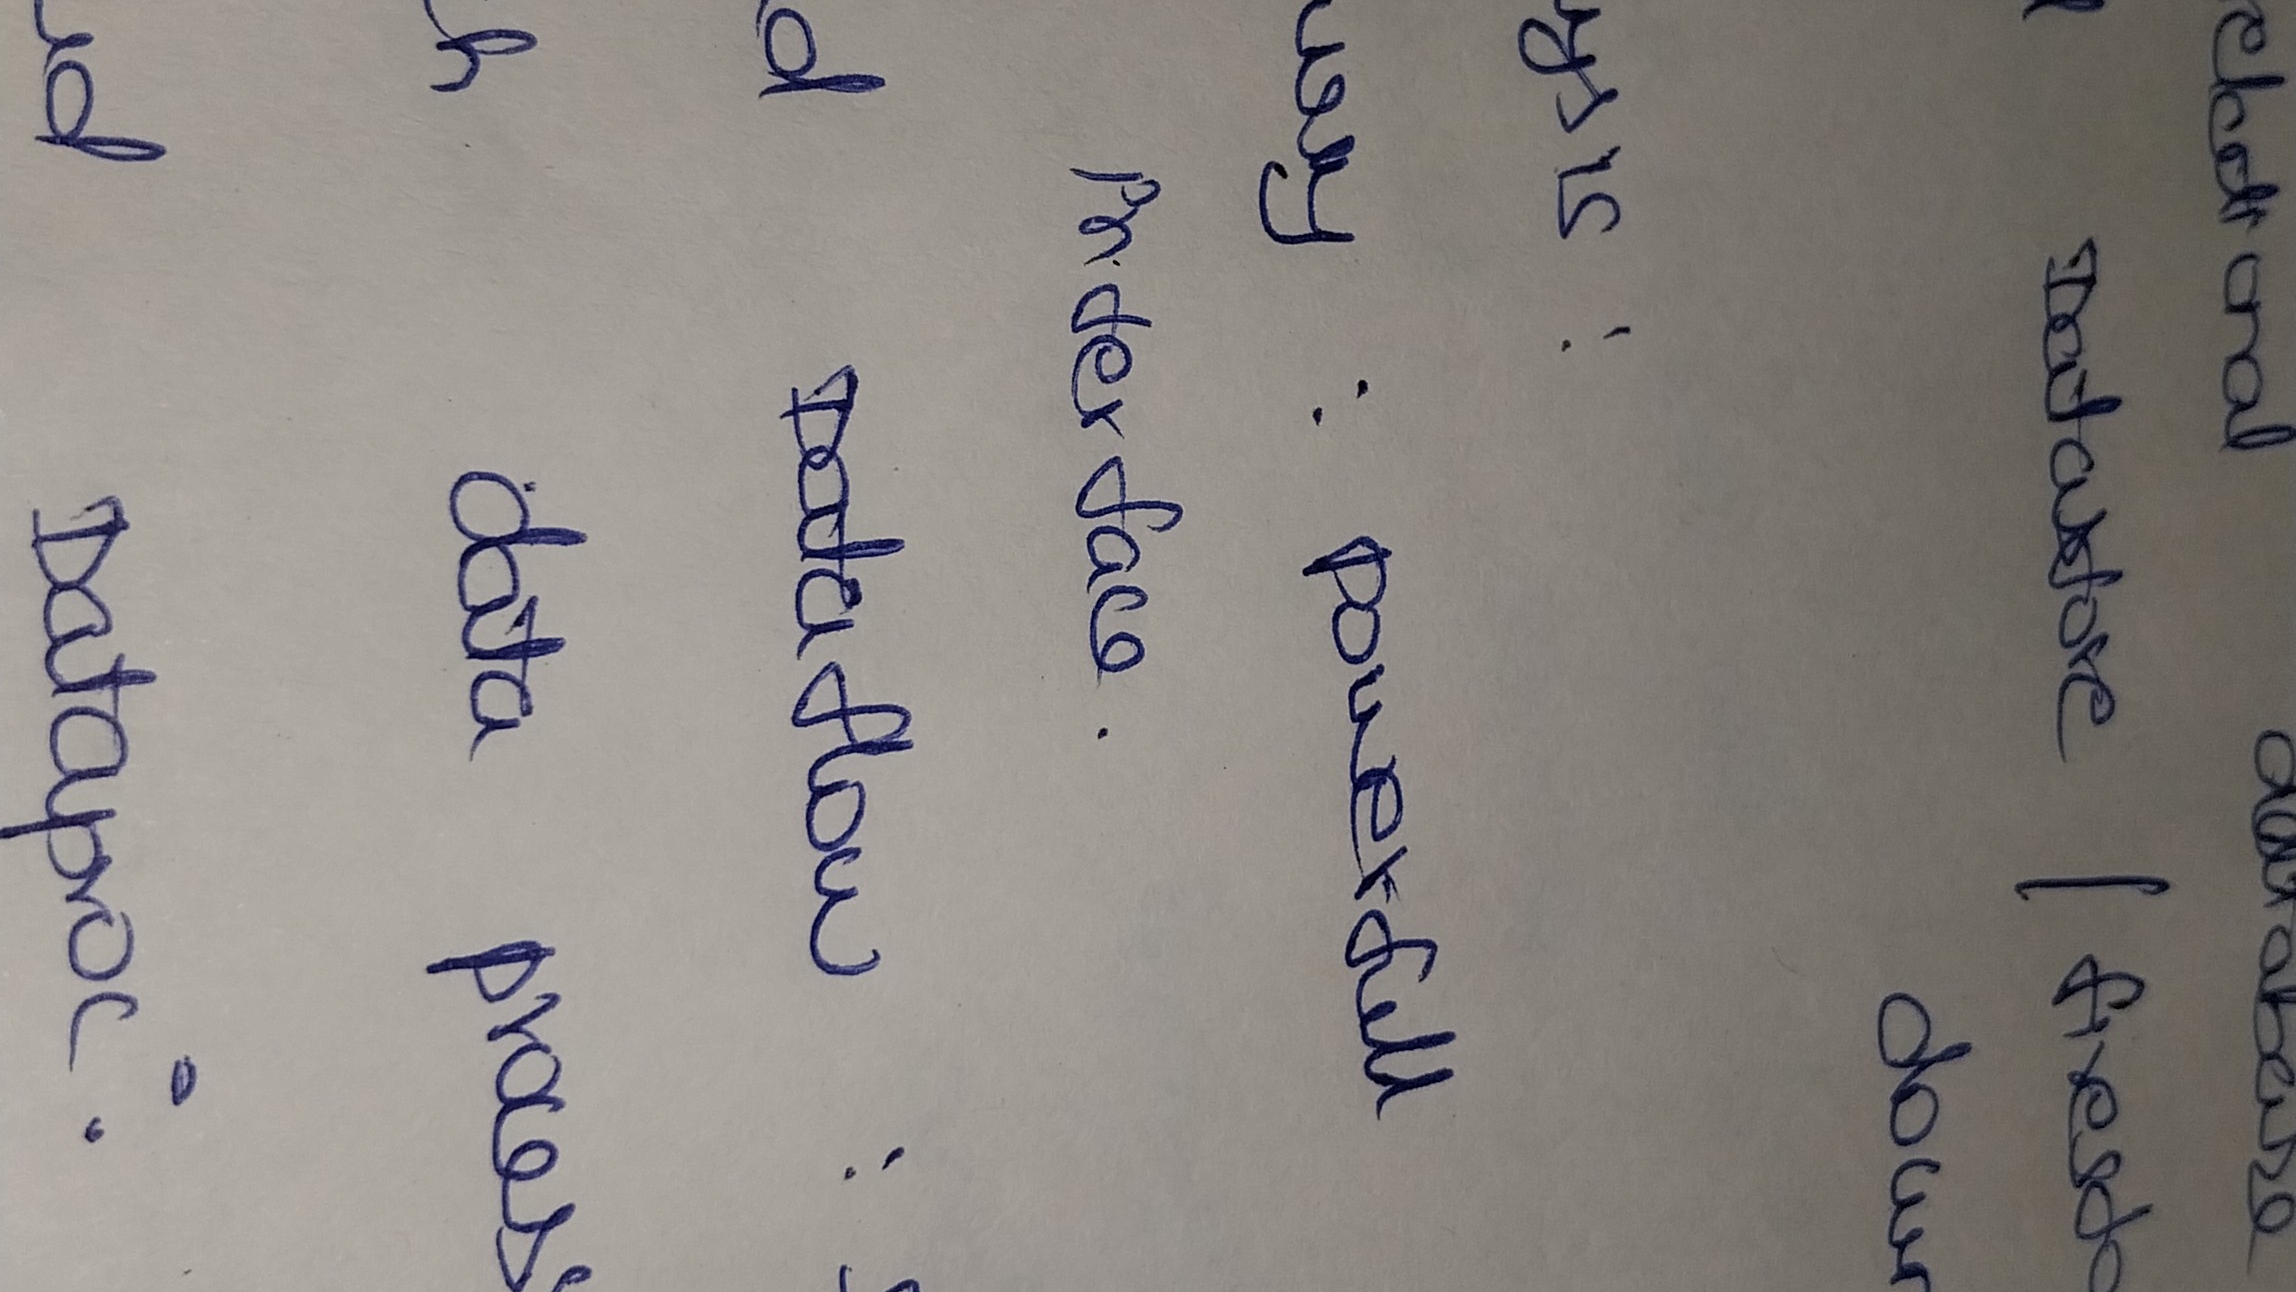 elational database
Datastore / firesto
docu
lysis :
uery : powerful
interface.
d Dataflow :
ch data process
ud Dataproc :